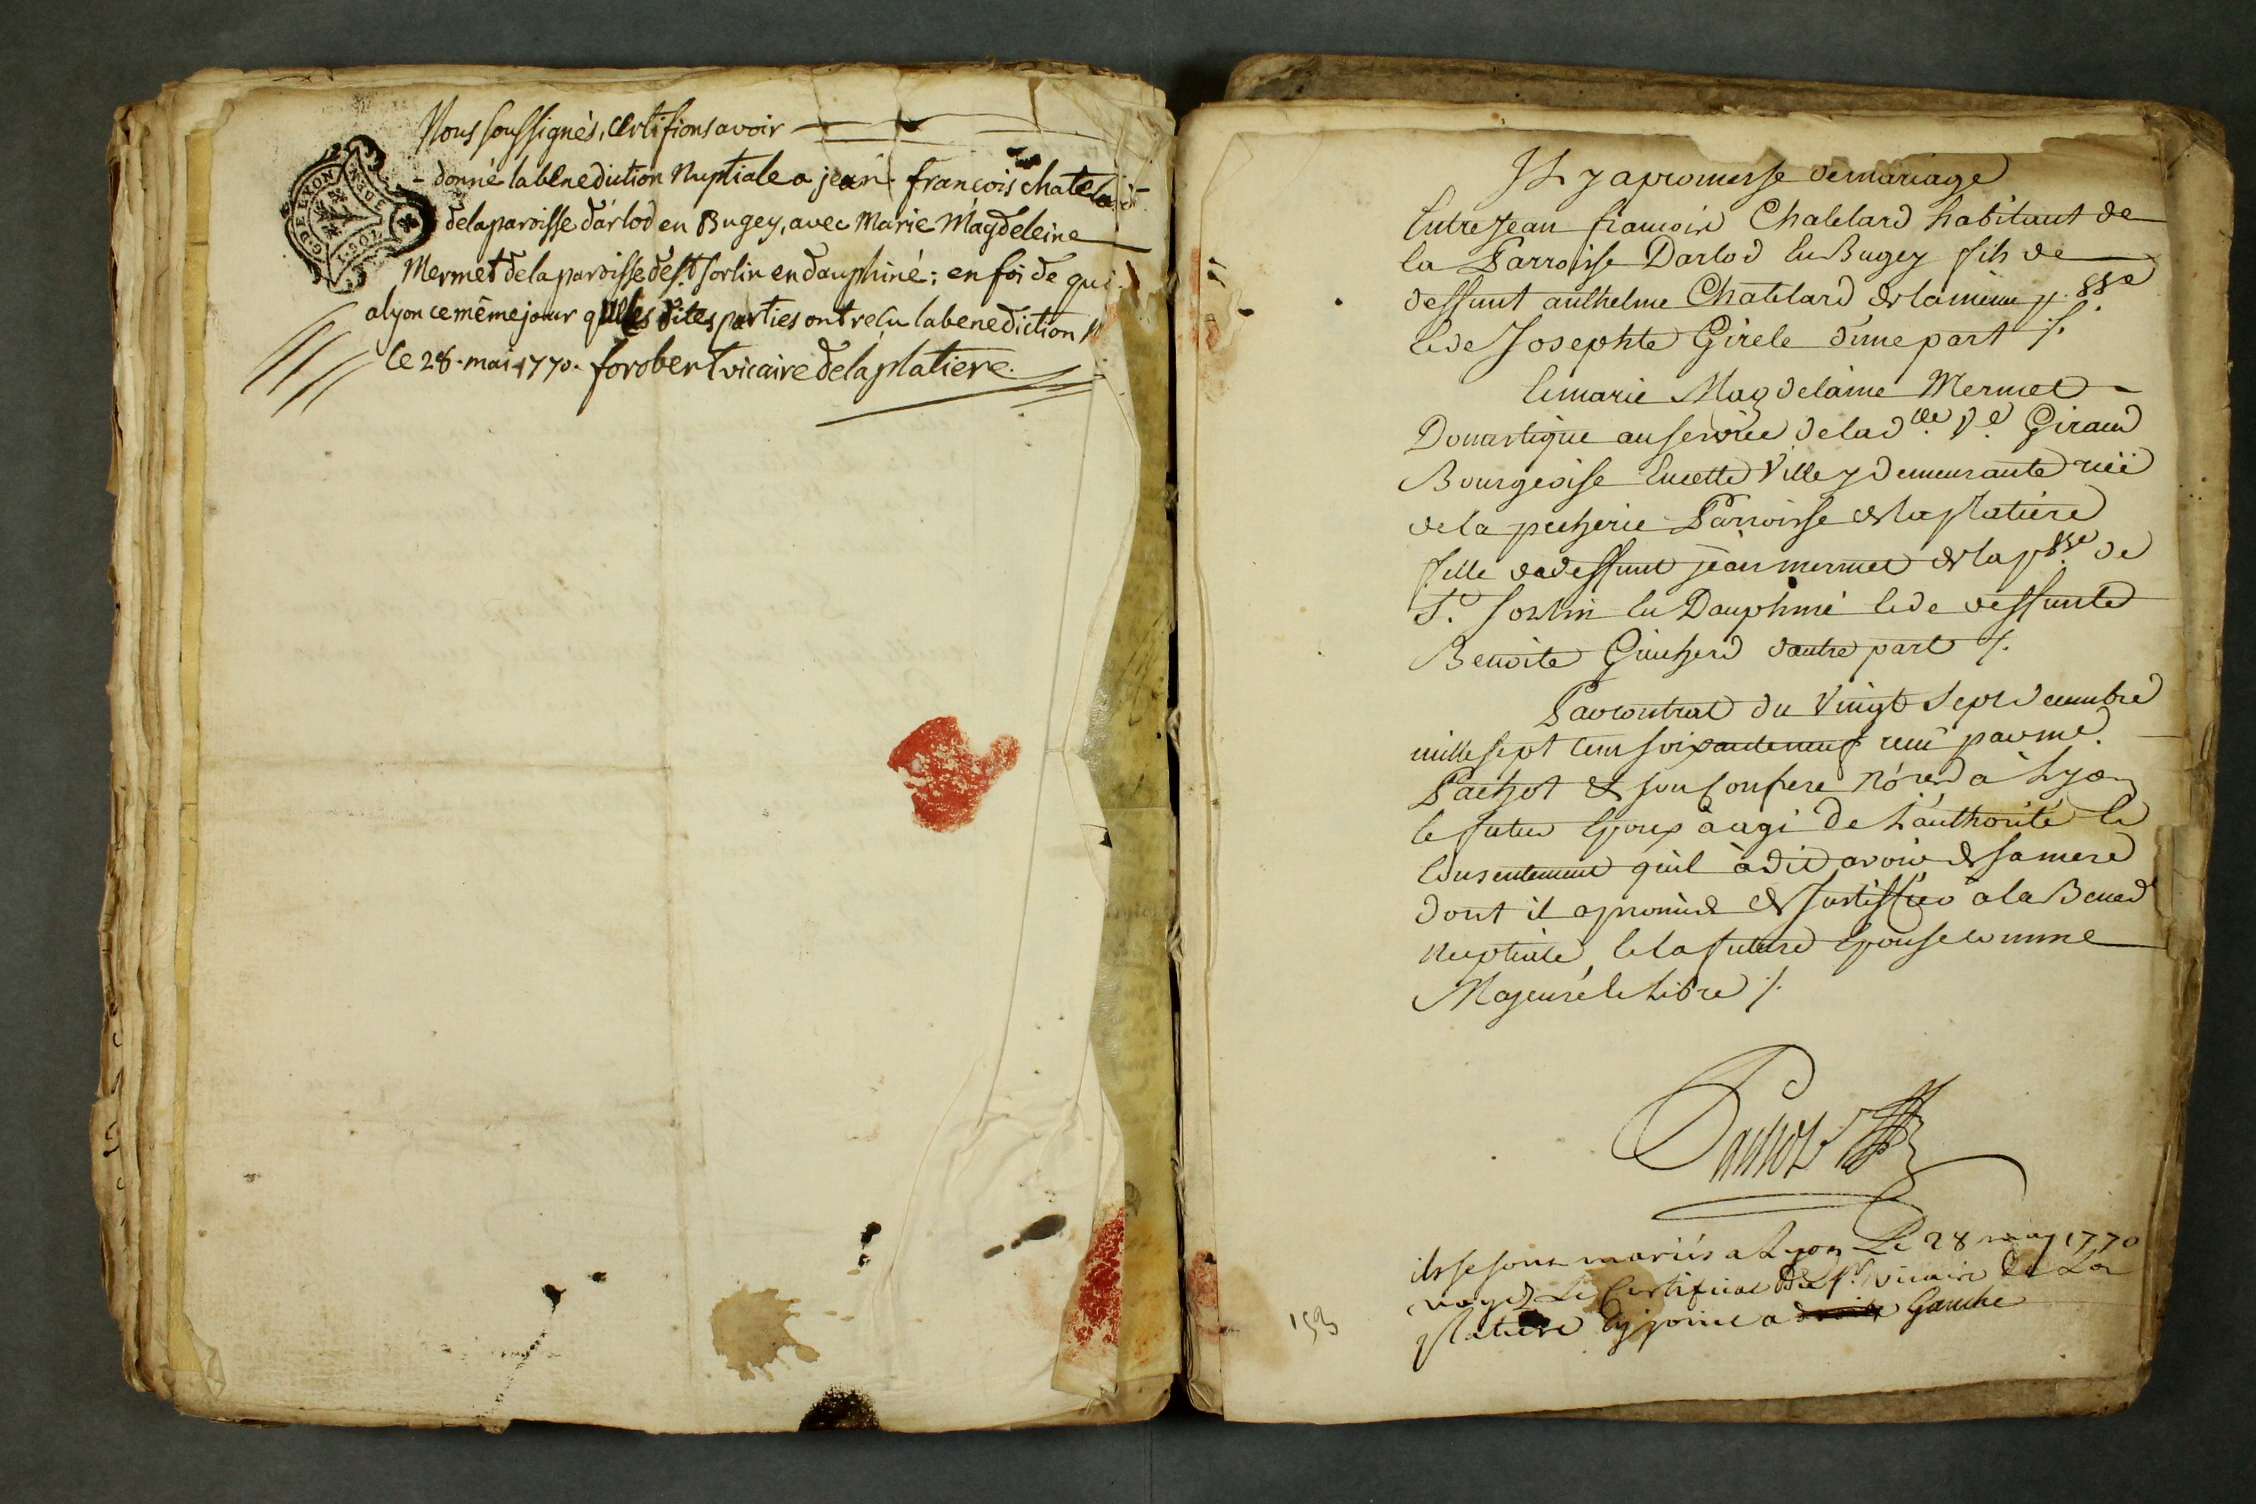 Nous soussignés, certifions avoir
donné la benediction Nuptiale a jean françois chatelard
de la paroisse d'arlod en Bugey, avec Marie Magdeleine
Mermet de la paroisse de St. sorlin en dauphiné; en foi de qui
a lyon ce même jour que les dites parties ont reçu la benediction
le 28. mai 1770. forobert vicaire de la platiere.
G. DE LYON
Il y a promesse de mariage
Entre Jean françois Chatelard habitant de
la Parroisse Darlod En Bugey fils de
deffunt anthelme Chatelard de la meme p.sse
Et de Josephte Girele d'une part /.
Et marie Magdelaine Mermet
Domestique au service de la dlle. Ve. Giraud
Bourgeoise En cette Ville y demeurante rüë
de la pecherie Parroisse de la platiere
fille de deffunt jean mermet de la psse. de
St. Sorlin En Dauphiné Et de deffunte
Benoite Guicherd d'autre part /.
Par contrat du vingt sept decembre
mille sept cent soixante neuf reçu par me.
Pachot & son Confrere No.res a Lyon
le futur Epoux a agi de L'authorité Et
Consentement qu'il à dit avoir de sa mere
dont il a promis de justiffier a la Bened
Nuptiale, Et la future Epouse comme
Majeure Et Libre /.
Pachot
ils se sont mariés a Lyon Le 28 may 1770
voyez Le Certificat du Sr. vicaire de La
platiere cy joint a droite Gauche
153